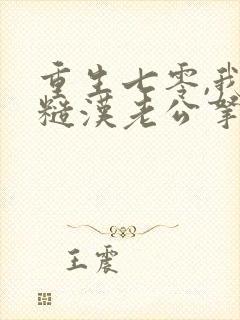 重生七零,我
糙漢老公拏
王震